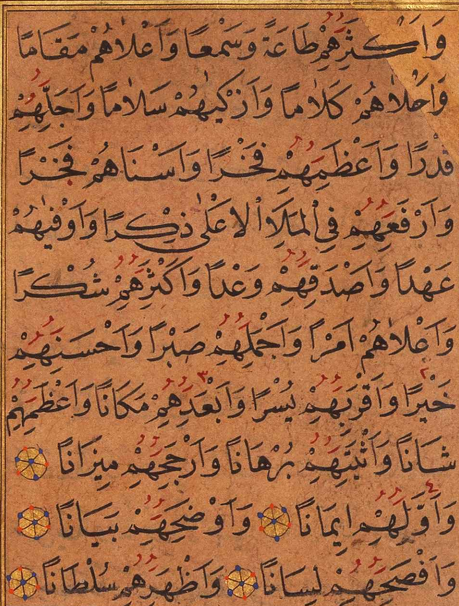 وَاَكْثَرِهِمْ طَاعَةً وَسَمْعًا وَاَعْلَاهُمْ مَقَامًا
وَاَحْلَاهُمْ كَلَامًا وَاَزْكٰيهُمْ سَلَامًا وَاَجَلِّهِمْ
قَدْرًا وَاَعْظَمِهِمْ فَخْرًا وَاَسْنَاهُمْ فَخْرًا
وَاَرْفَعِهِمْ فِي الْمَلَاِ الْاَعْلٰى ذِكْرًا وَاَوْفٰيهُمْ
عَهْدًا وَاَصْدَقِهِمْ وَعْدًا وَاَكْثَرِهِمْ شُكْرًا
وَاَعْلَاهُمْ اَمْرًا وَاَجْمَلِهِمْ صَبْرًا وَاَحْسَنِهِمْ
خَيْرًا وَاَقْرَبِهِمْ يُسْرًا وَاَبْعَدِهِمْ مَكَانًا وَاَعْظَمِهِمْ
شَانًا وَاَثْبَتِهِمْ بُرْهَانًا وَاَرْجَحِهِمْ مِيزَانًا
وَاَوَّلِهِمْ اِيمَانًا وَاَوْضَحِهِمْ بَيَانًا
وَاَفْصَحِهِمْ لِسَانًا وَاَظْهَرِهِمْ سُلْطَانًا